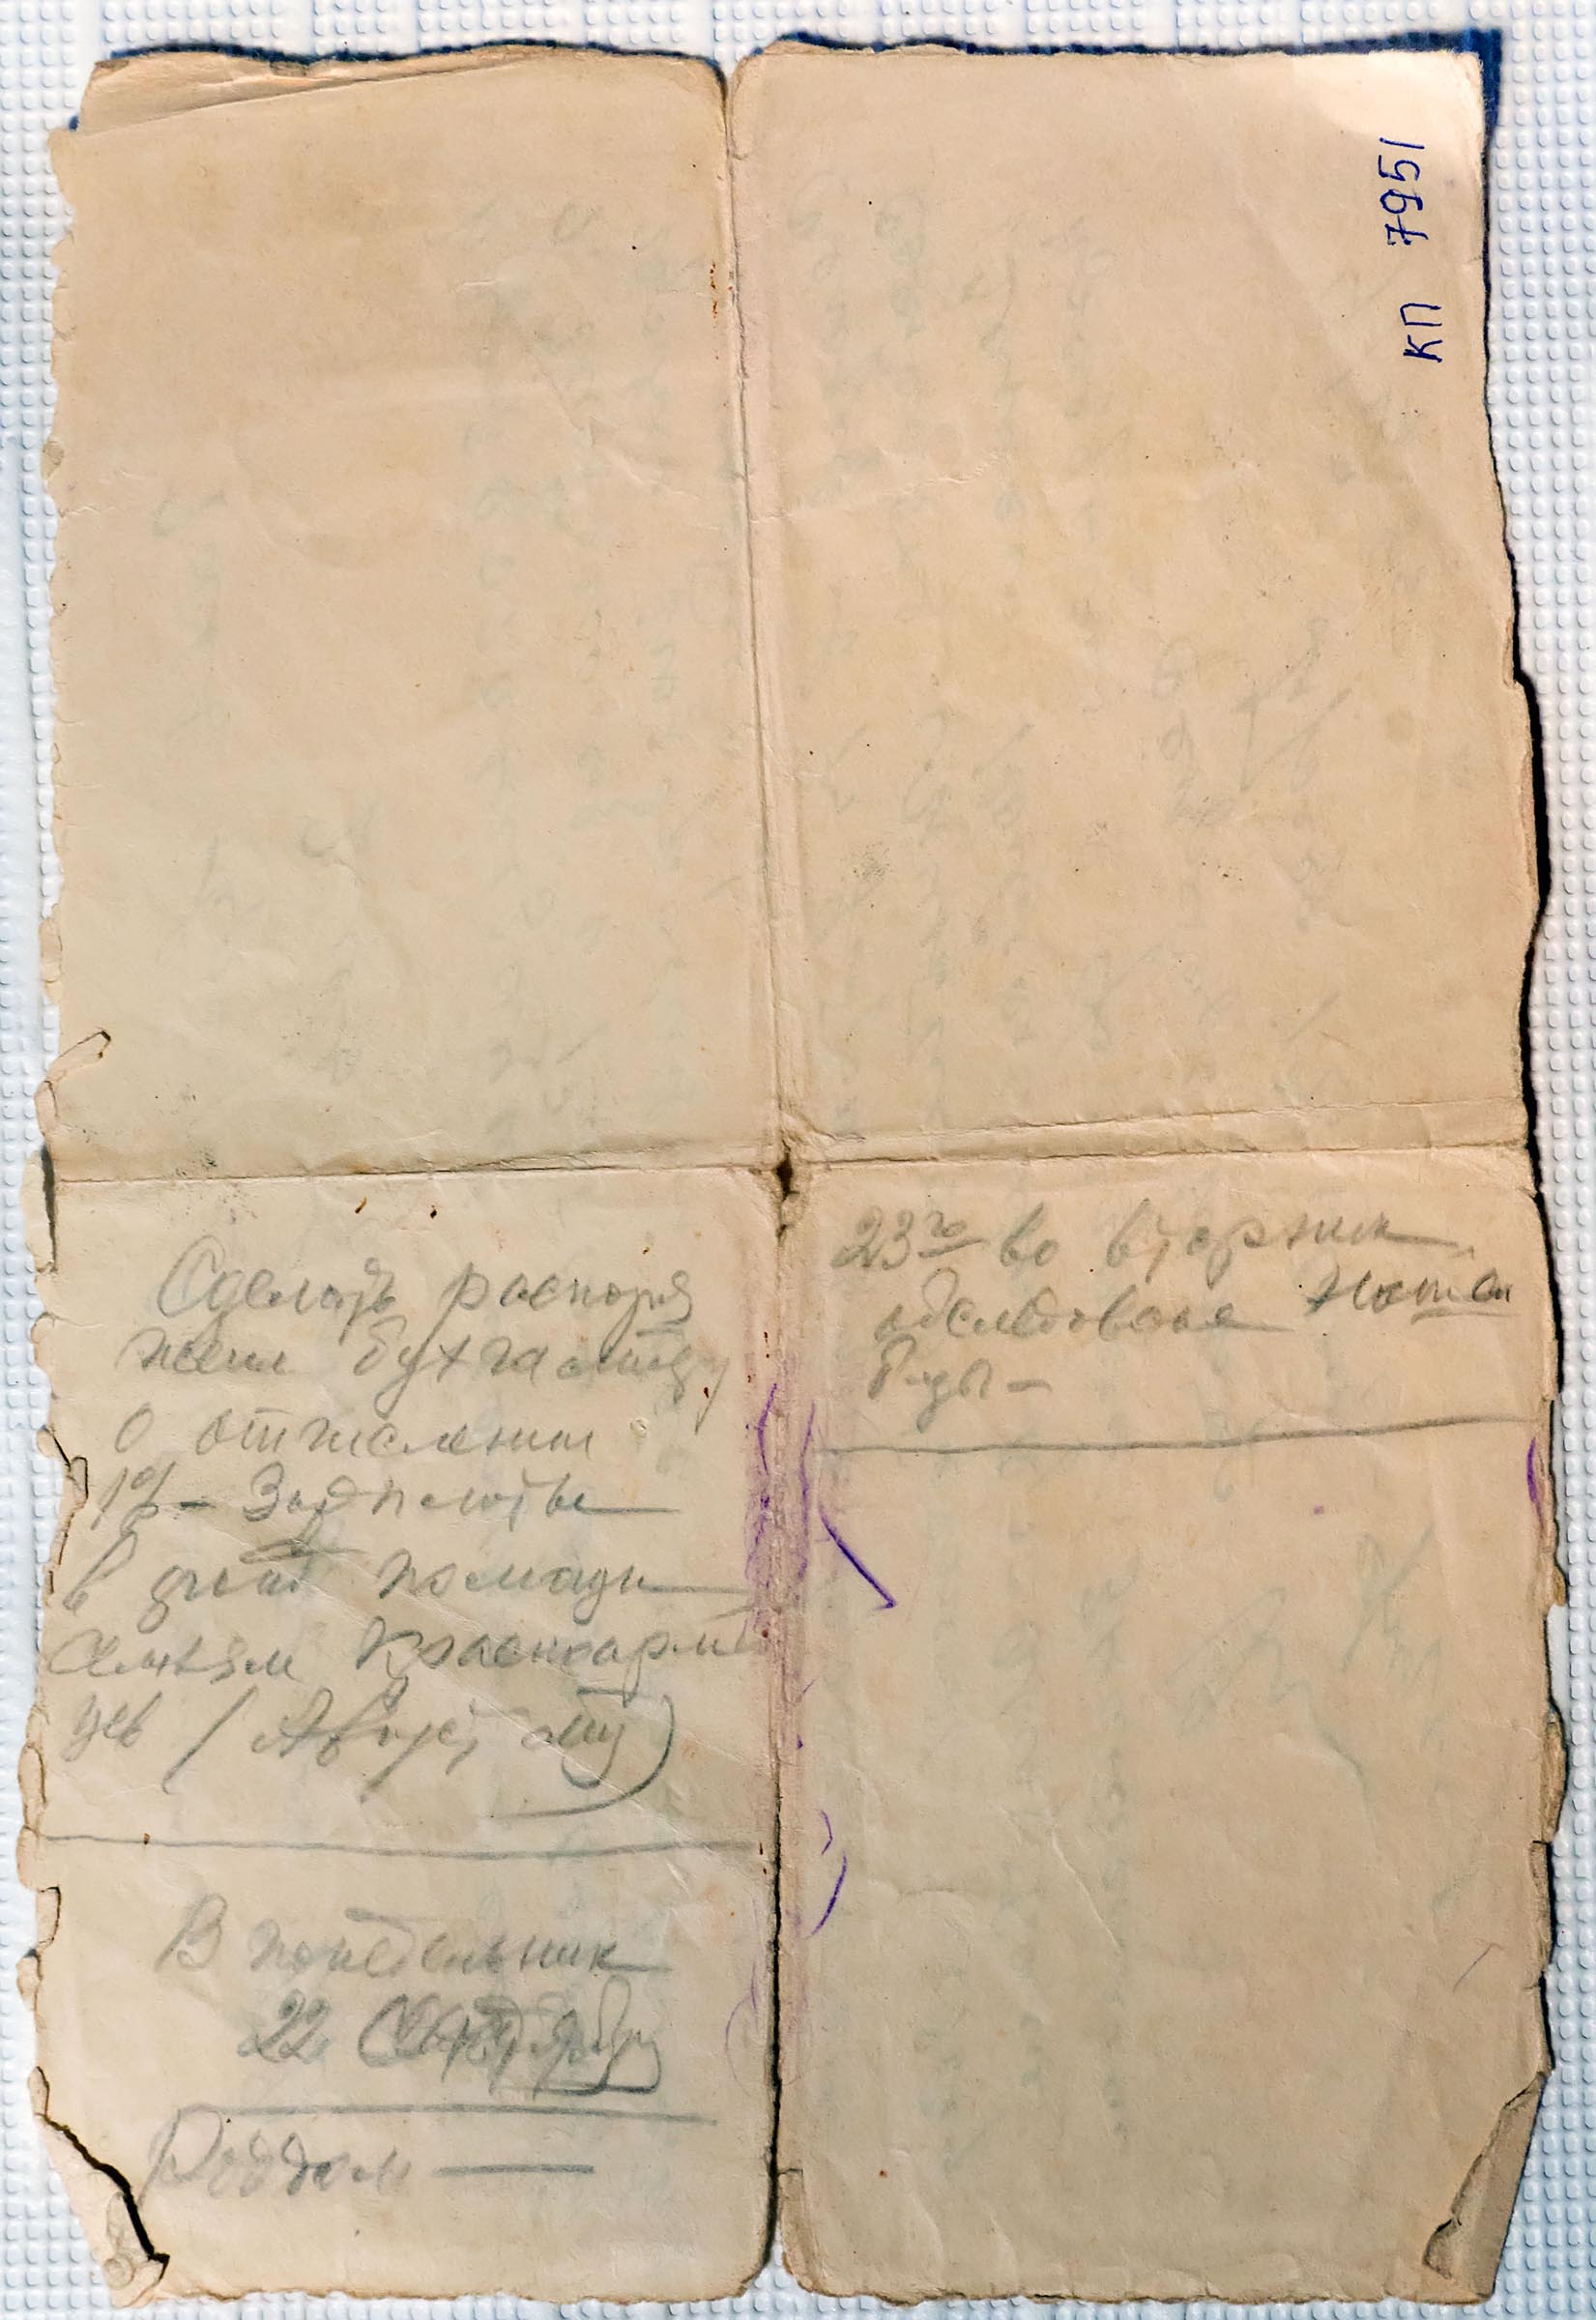 КП 7951
Сделать распоря
жени бухгалтеру
о отчислении
1% - Зарплоты
в фонд помощи
семьям красноармей
цев / Август
В понедельник
22 Сентября
Роддом —
23го во вторник
обследование